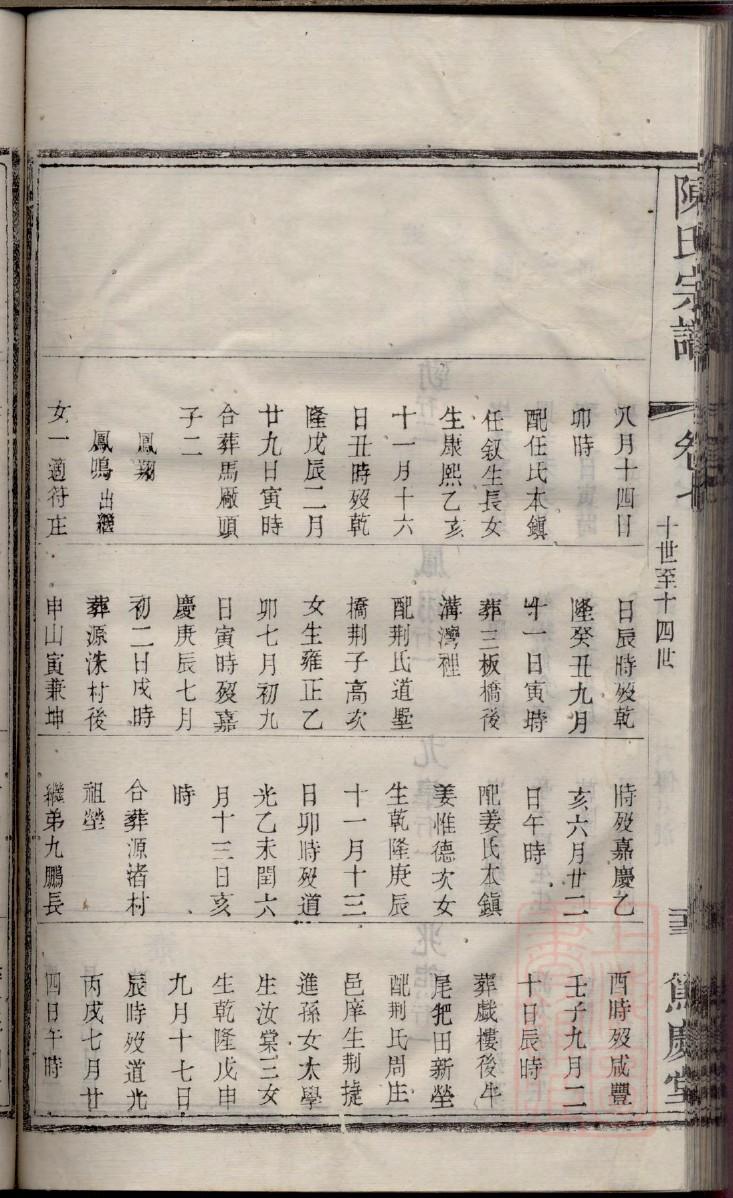 陳氏宗譜
卷七
十世至十四世
八月十四日
卯時
配任氏本鎮
任叙生長女
生康熙乙亥
十一月十六
日丑時歿乾
隆戊辰二月
廿九日寅時
合葬馬廠頭
子二
鳳翔
鳳鳴出繼
女一適符庄
日辰時歿乾
隆癸丑九月
十一日寅時
葬三板橋後
溝灣裡
配荆氏道墅
橋荆子高次
女生雍正乙
卯七月初九
日寅時歿嘉
慶庚辰七月
初二日戌時
葬源洙村後
申山寅兼坤
時歿嘉慶乙
亥六月廿二
日午時
配姜氏本鎮
姜惟德次女
生乾隆庚辰
十一月十三
日卯時歿道
光乙未閏六
月十三日亥
時
合葬源渚村
祖塋
繼弟九鵬長
酉時歿咸豐
壬子九月二
十日辰時
葬戲樓後牛
尾𥝱田新塋
配荆氏周庄
邑庠生荆捷
進孫女太學
生汝棠三女
生乾隆戊申
九月十七日
辰時歿道光
丙戌七月廿
四日午時